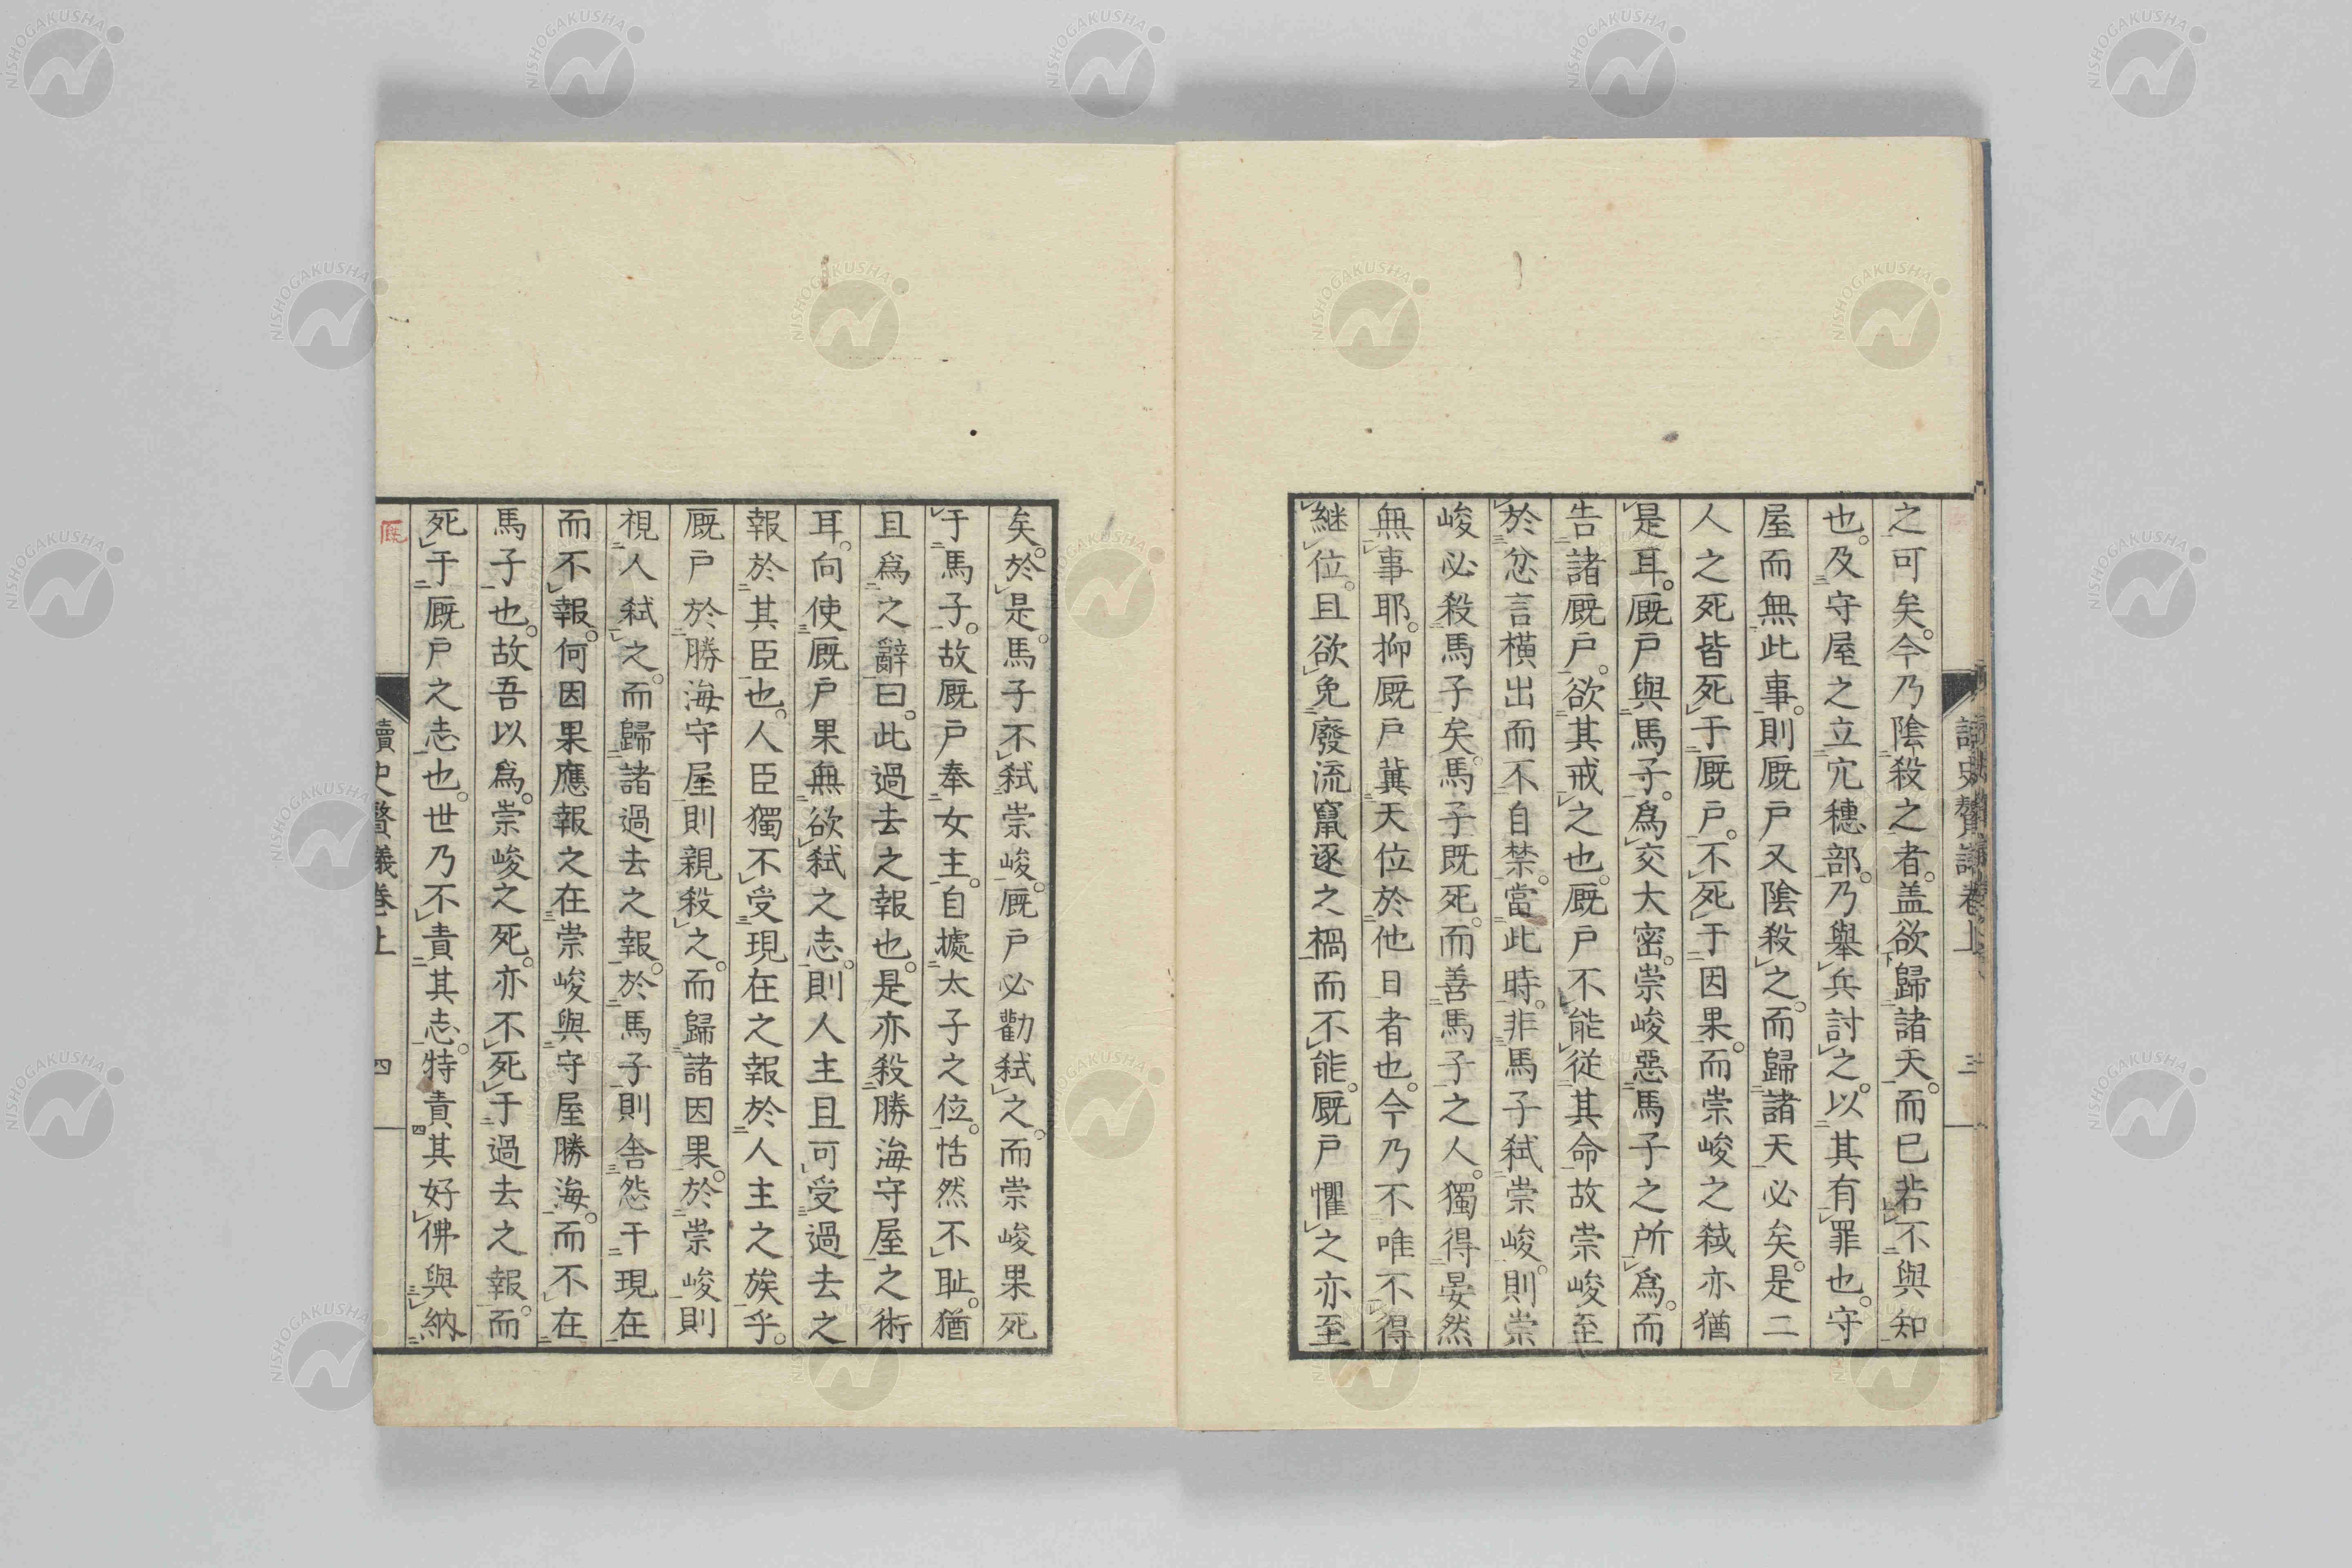 之可矣。今乃陰殺之者。盖欲歸諸天。而已若不與知
也。及守屋之立宂穗部。乃舉兵討之。以其有罪也。守
屋而無此事。則厩戸又陰殺之。而歸諸天必矣。是二
人之死皆死于厩戸。不死于因果。而崇峻之弑亦猶
是耳。厩戸與馬子。爲交大密。崇峻惡馬子之所爲。而
告諸厩戸。欲其戒之也。厩戸不能從其命故崇峻至
於忿言橫出而不自禁。當此時。非馬子弑崇峻。則崇
峻必殺馬子矣。馬子既死。而善馬子之人。獨得晏然
無事耶。抑厩戸冀天位於他日者也。今乃不唯不得
継位。且欲免廢流竄逐之禍而不能。厩戸懼之亦至
矣。於是。馬子不弑崇峻。厩戸必勸弑之。而崇峻果死
于馬子。故厩戸奉女主。自據太子之位。恬然不耻。猶
且爲之辭曰。此過去之報也。是亦殺勝海守屋之術
耳。向使厩戸果無欲弑之志。則人主且可受過去之
報於其臣也。人臣獨不受現在之報於人主之族乎。
厩戸於勝海守屋則親殺之。而歸諸因果。於崇峻則
視人弑之。而歸諸過去之報。於馬子則舍怨于現在
而不報。何因果應報之在崇峻與守屋勝海。而不在
馬子也。故吾以爲。崇峻之死。亦不死于過去之報。而
死于厩戸之志也。世乃不責其志。特責其好佛與納
厩
讀史贅議卷上
四
NISHOGAKUSHA